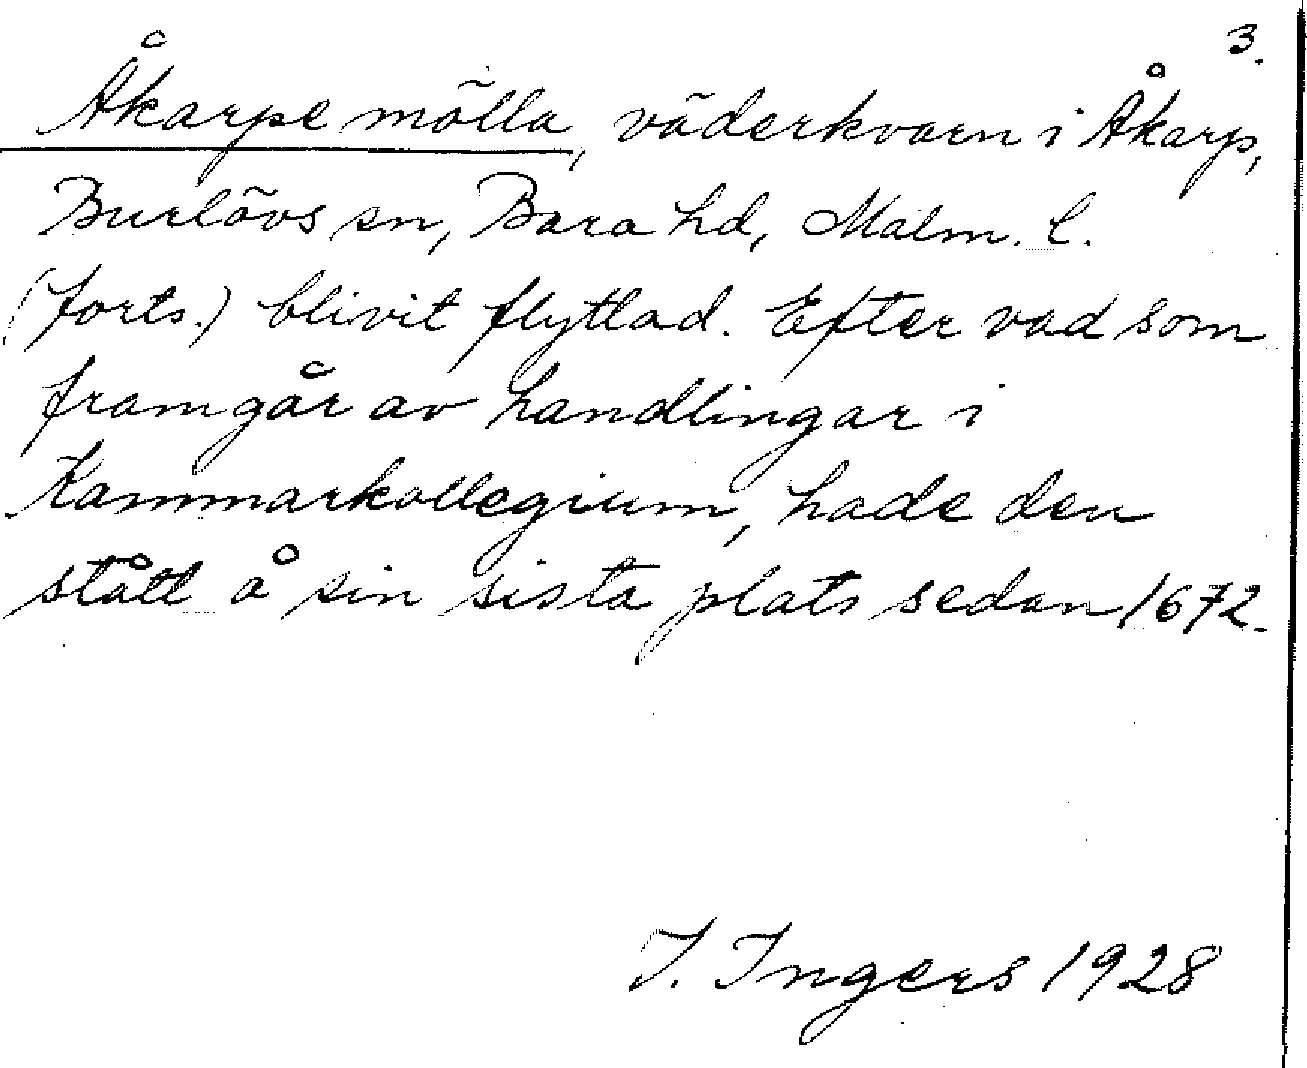 3.
Åkarps mölla, väderkvarn i Åkarp,
Burlövs sn, Bara hd, Malm. l.
(forts.) blivit flyttad. Efter vad som
framgår av handlingar i
Kammarkollegium, hade den
stått å sin sista plats sedan 1672.
I. Ingers 1928